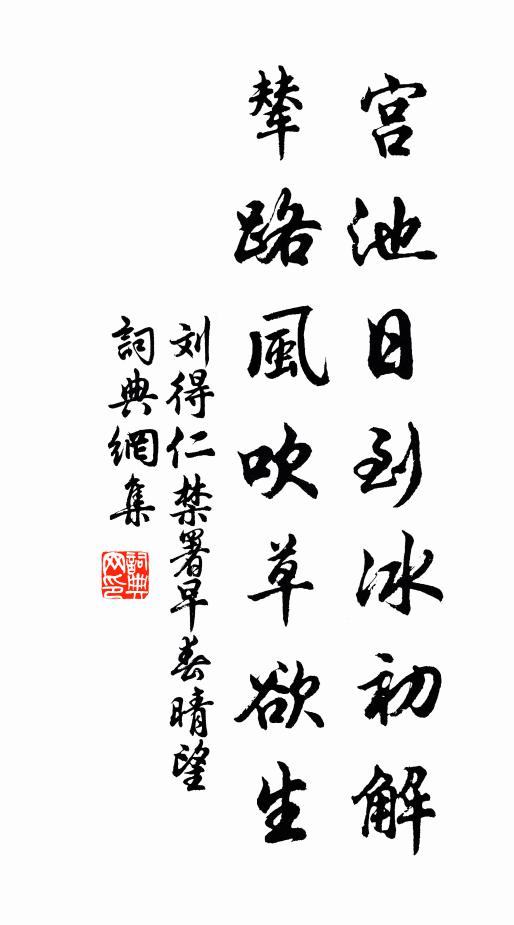 宫池日到冰初解
輦路風吹草欲生
刘得仁禁署早春晴望
詞典網集
詞典网印